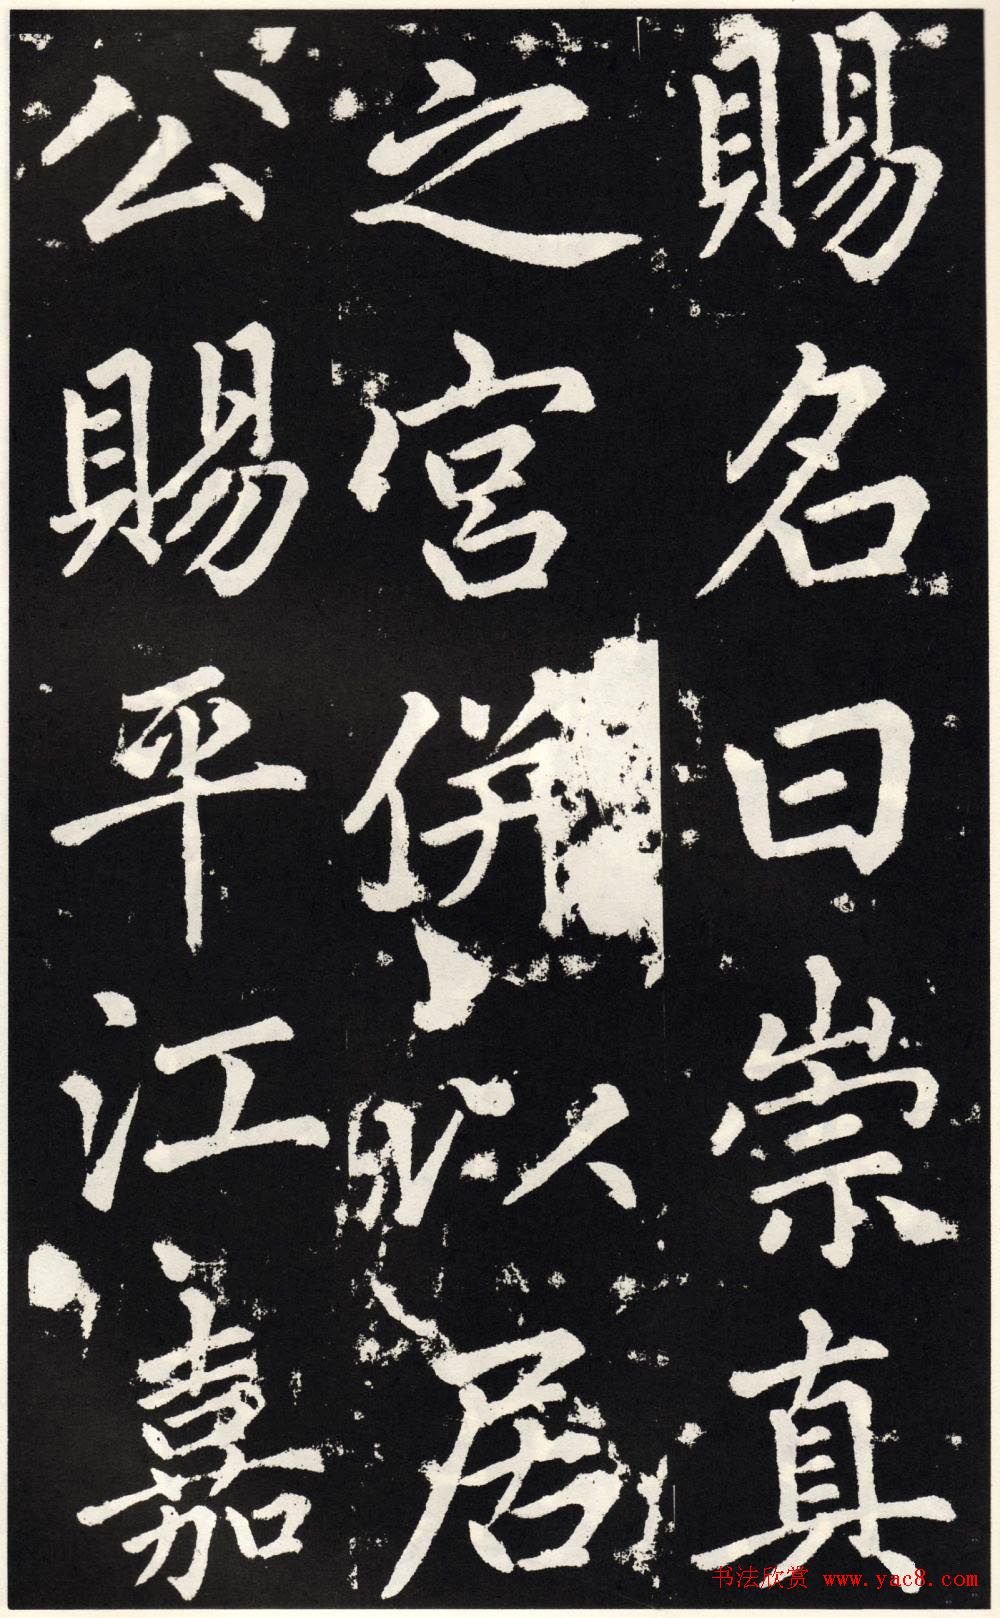 賜名曰崇真
之宮併以居
公賜平江嘉
书法欣赏 www.yac8.com